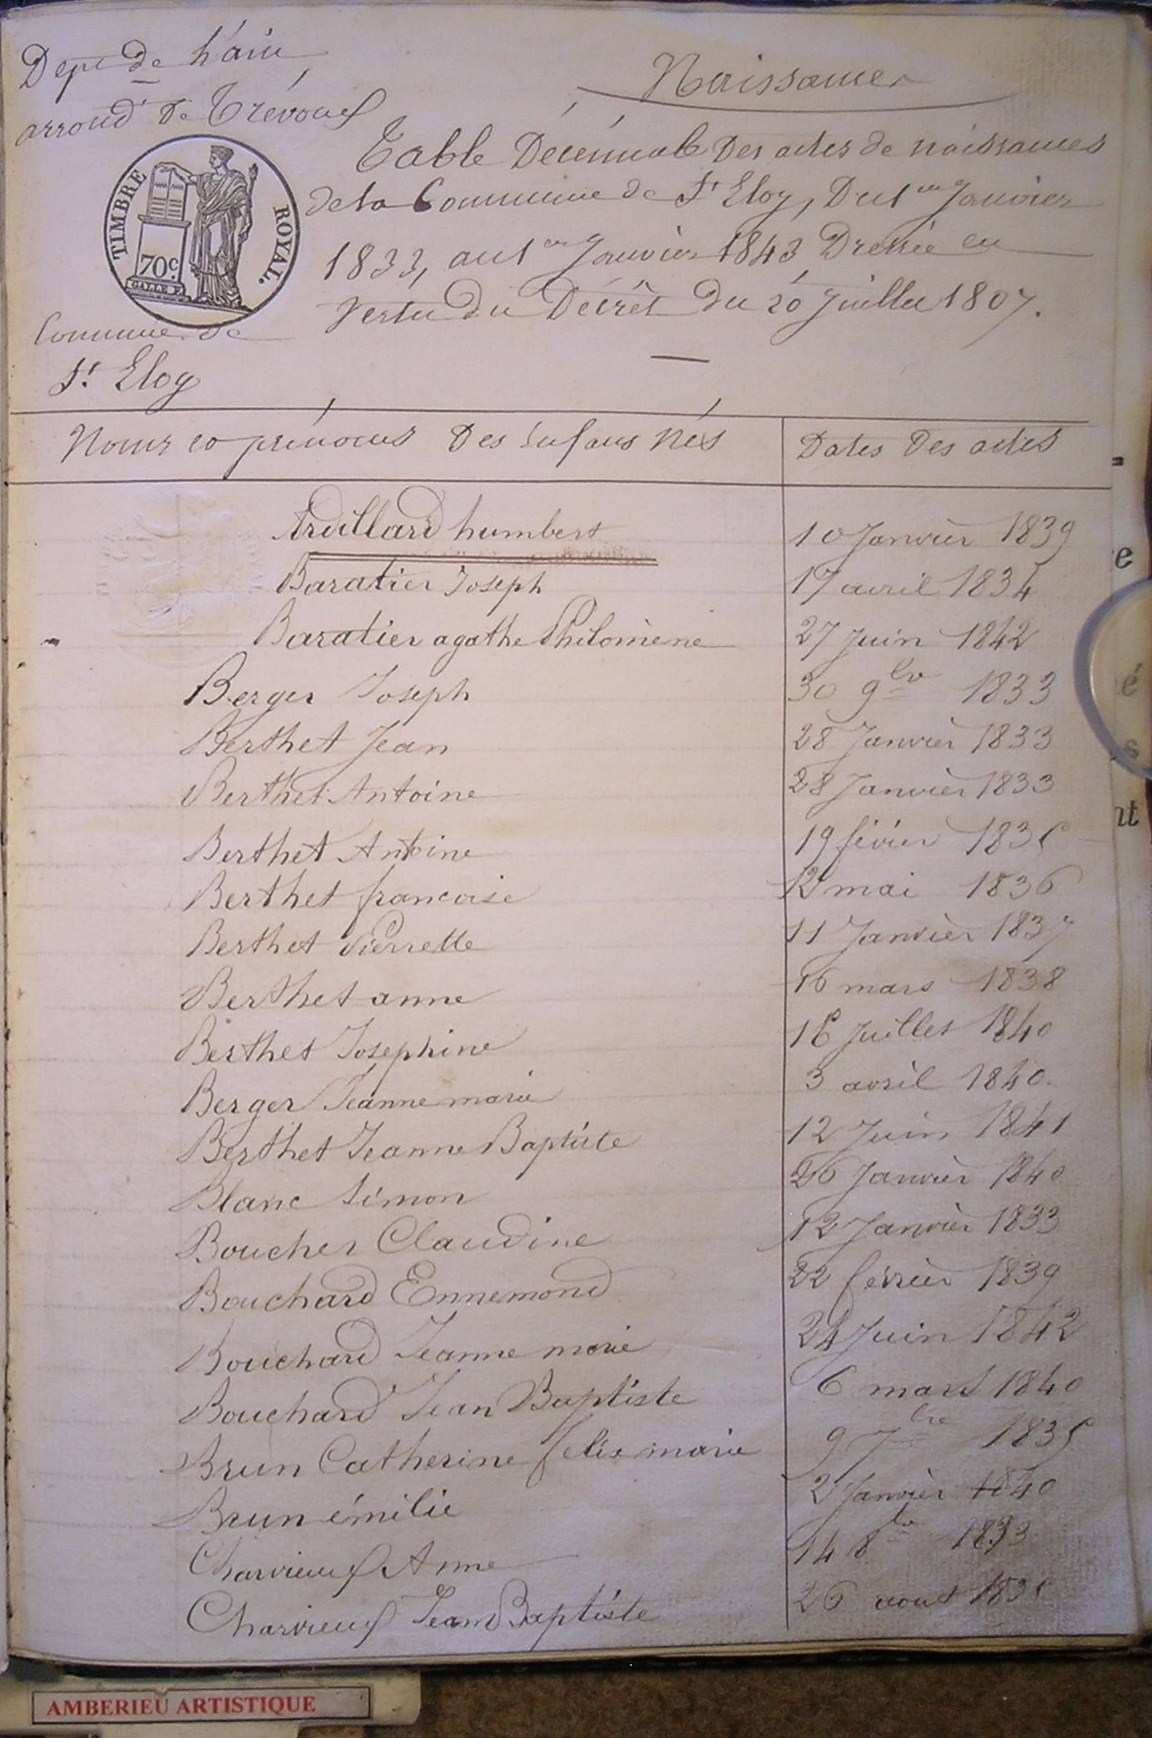 Dept de l'ain
arrond t de Trévoux
Naissances
TIMBRE ROYAL.
70c
Table Décennale Des actes de naissances
de la Commune de St Eloy, Du 1er Janvier
1833, au 1er Janvier 1843 Dressée en
vertu du Décrêt du 20 Juillet 1807.
Commune de
St Eloy
Noms et prénoms Des Enfans Nés Dates Des actes
Ardillard humbert 10 Janvièr 1839
Baratier Joseph 17 avril 1834
Baratier agathe Philomène 27 Juin 1842
Berger Joseph 30 9bre 1833
Berthet Jean 28 Janvièr 1833
Berthet Antoine 28 Janvièr 1833
Berthet Antoine 19 févier 1835
Berthet francoise 12 mai 1836
Berthet Pierrette 11 Janvièr 1837
Berthet anne 16 mars 1838
Berthet Josephine Juillet 1840
Berger Jeanne marie 3 avril 1840.
Berthet Jeanne Baptiste 12 Juin 1841
Blanc Simon 26 Janvièr 1840
Boucher Claudine 12 Janvièr 1833
Bouchard Ennemond 22 févrièr 1839
Bouchard Jeanne marie 24 Juin 1842
Bouchard Jean Baptiste 6 mars 1840
Brun Catherine felix marie 9 7bre 1835
Brun émilie 2 Janvièr 1840
Charvieux Anne 14 8bre 1833
Charvieux Jean Baptiste 26 aout 1835
AMBERIEU ARTISTIQUE